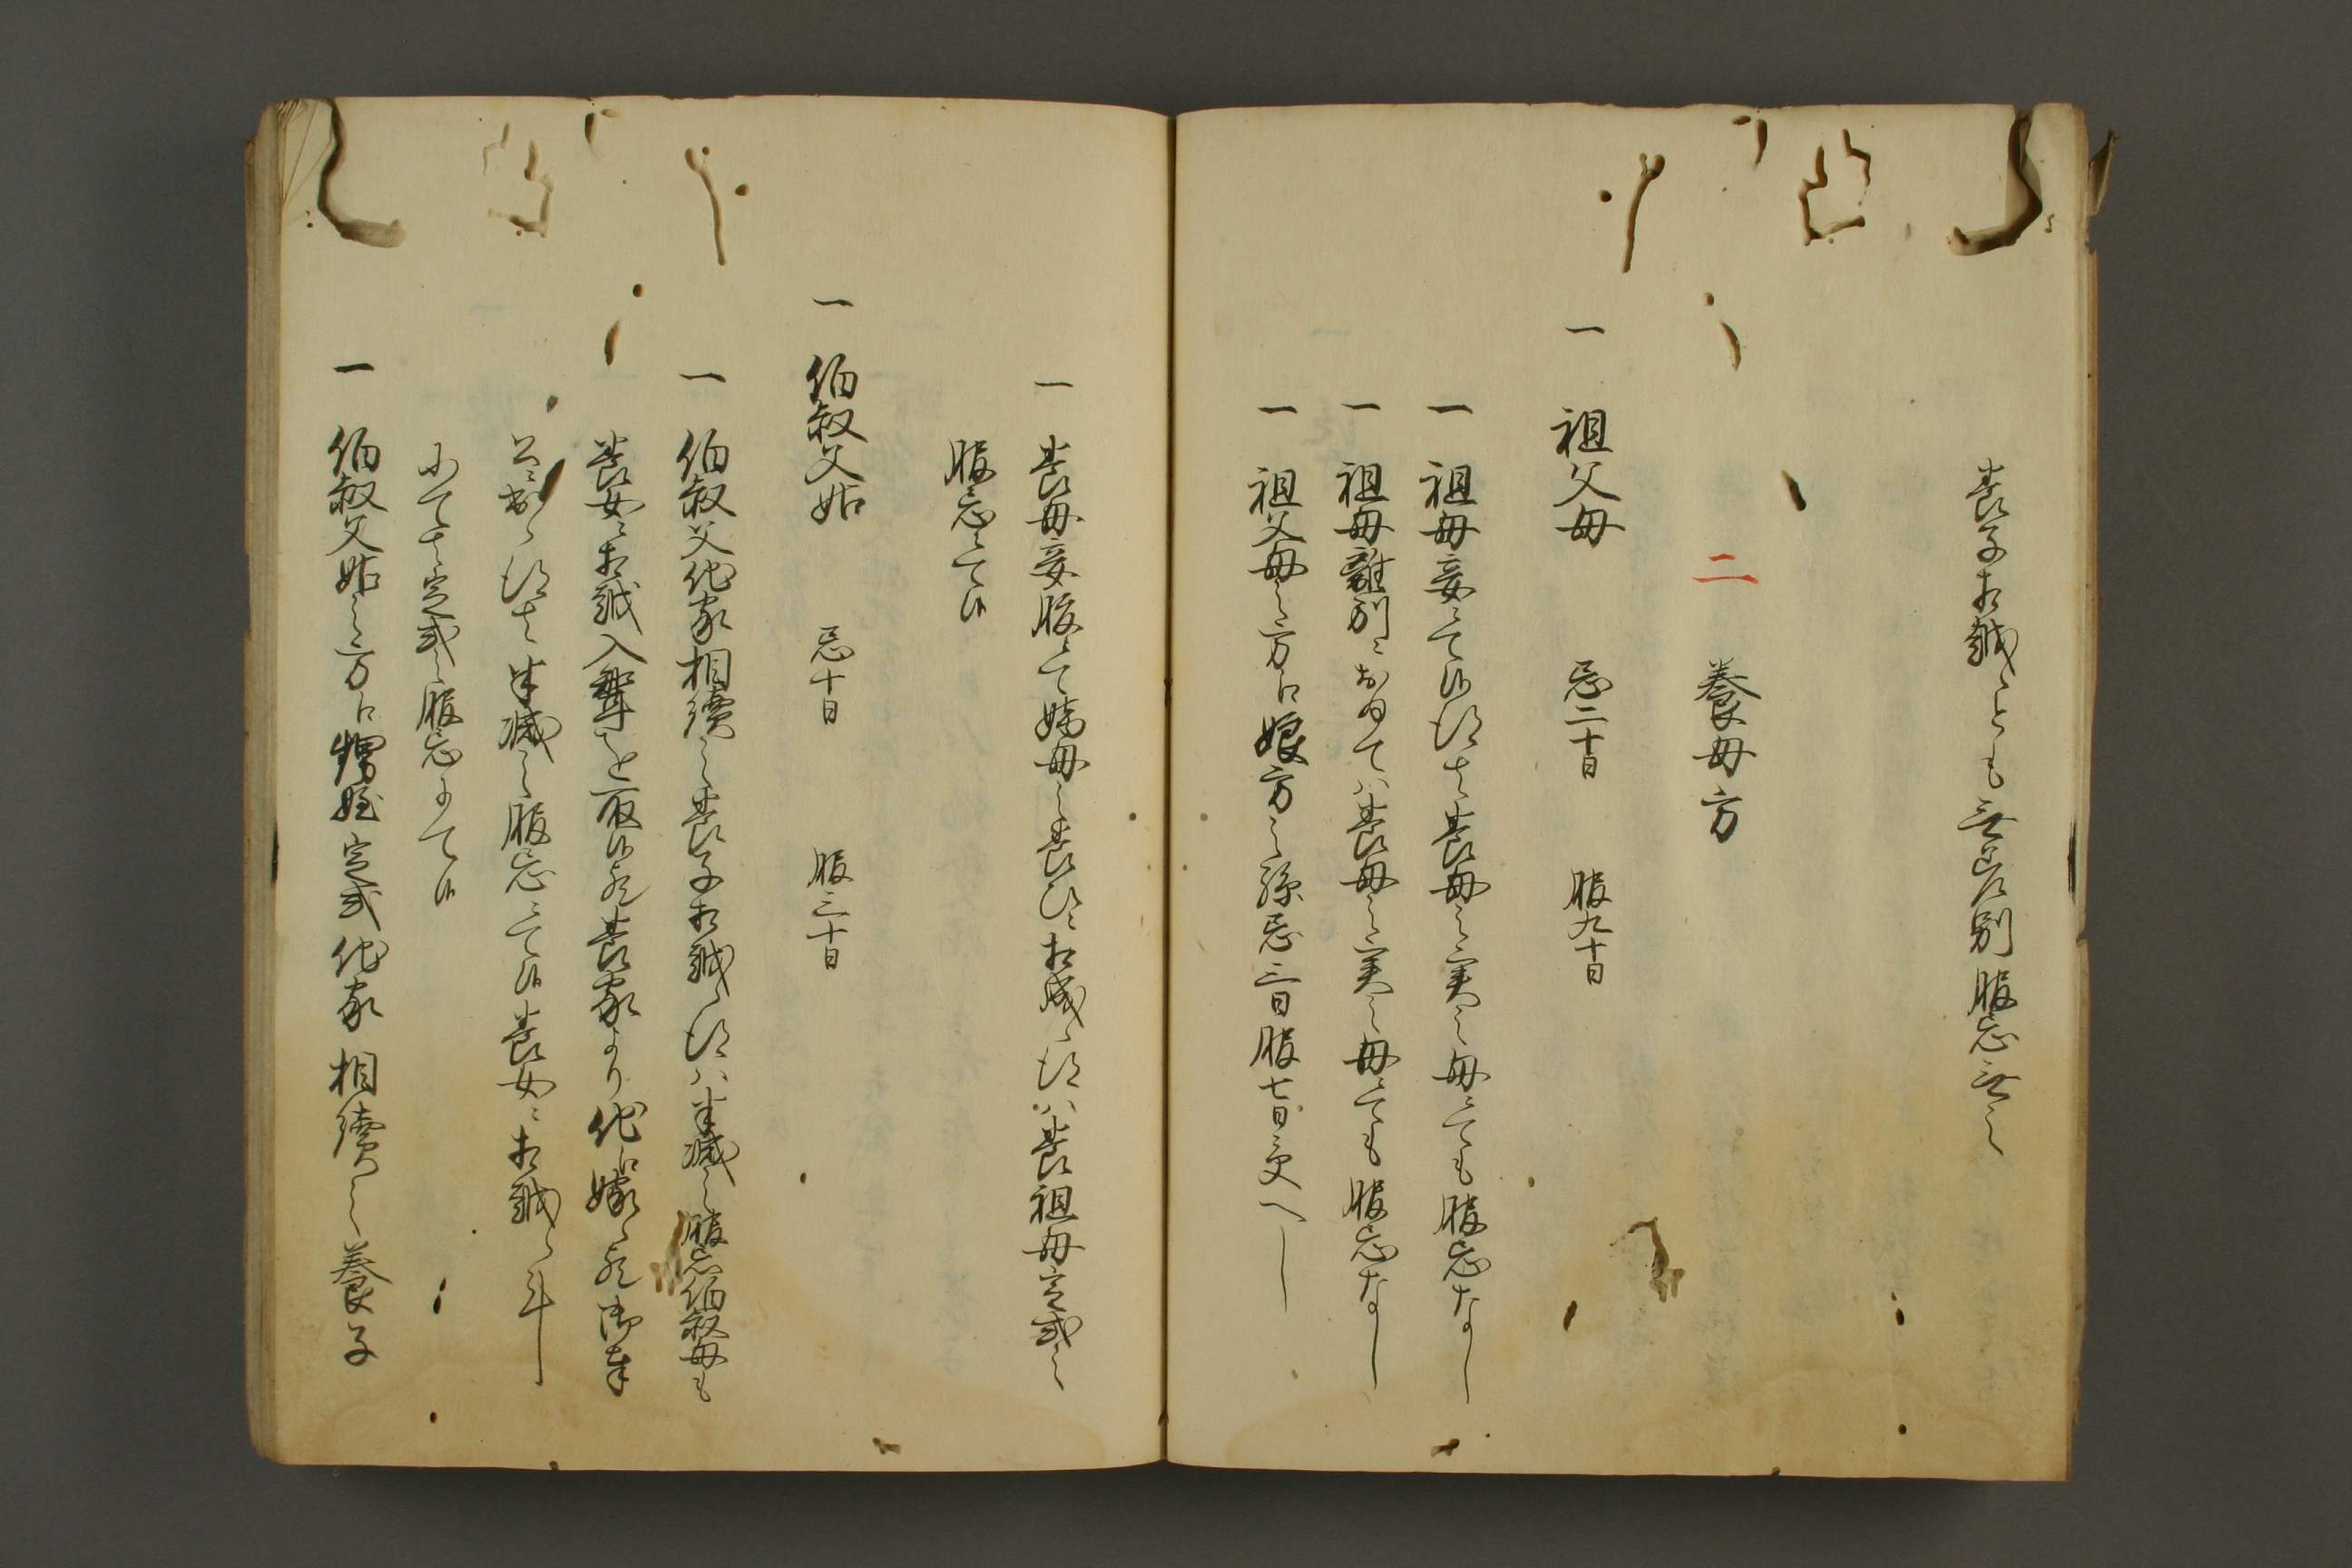 養子相越候とも無差別服忌無之
二 養母方
一 祖父母 忌二十日 服九十日
一 祖母妾ニて候得者養母之実之母ニても服忌なし
一 祖母離別ニおゐてハ養母之実之母ニても服忌なし
一 祖父母之方江娘方之孫忌三日服七日受へし
一 養母妾腹ニて嫡母之養ひニ相成候得ハ養祖母定式之
服忌ニて候
一 伯叔父姑 忌十日 服三十日
一 伯叔父他家相續之養子相越候得ハ半減之服忌伯叔母も
養女ニ相越入聟を取候欤養家より他江嫁候欤
候得者半減之服忌ニて候養女ニ相越候斗
ニて者定式之服忌ニて候
一 伯叔父姑之方江甥姪定式他家相續之養子